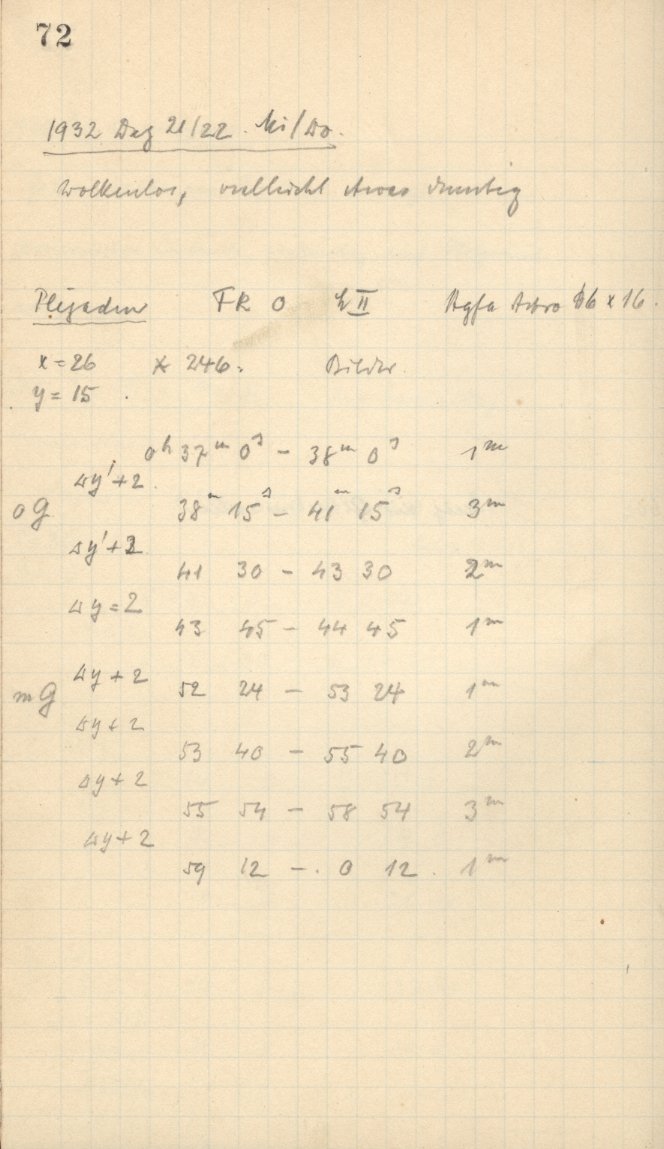 72
1932 Dez 21/22. Mi/Do.
Wolkenlos, vielleicht etwas dunstig
Plejaden FR O II Agfa Astro 16 x 16.
x = 26 * 246. Bilder.
y = 15
0h 37m 0s - 38m 0s 1m
Δy'+2
oG 38m 15s - 41m 15s 3m
Δy'+2
41 30 - 43 30 2m
Δy=2
43 45 - 44 45 1m
Δy+2
mG 52 24 - 53 24 1m
Δy+2
53 40 - 55 40 2m
Δy+2
55 54 - 58 54 3m
Δy+2
59 12 - 0 12 1m